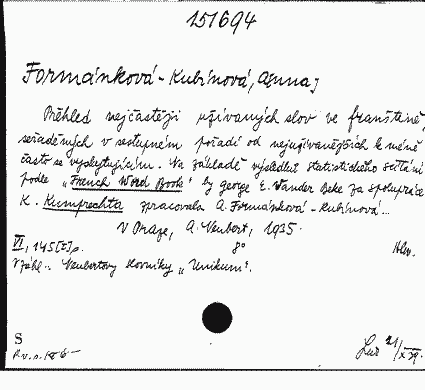 151694
Formánková-Kubínová, Anna,
Přehled nejčastěji užívaných slov ve franštině,
seřaděných v sestupném pořadí od nejužívanějších k méně
často se vyskytujícím. Na základě výsledků statistického sčítání
podle „French Word Book" by george E. Vander Beke za spolupráce
K. Kumprechta zpracovala A. Formánková-Kubínová...
V Praze, A. Neubert, 1935.
VI, 145[I]p. 8°
V záhl.: Neubertovy slovníky „Unikum".
S